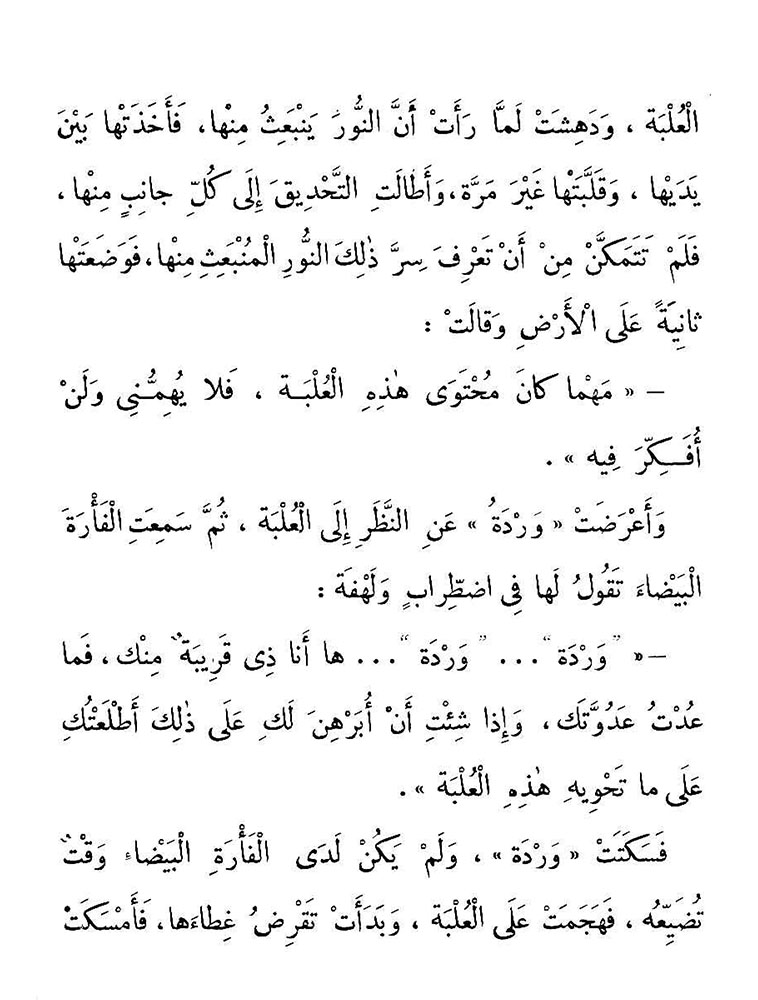 الْعُلْبَة ، وَدَهِشَتْ لَمَّا رَأَتْ أَنَّ النُّورَ يَنْبَعِثُ مِنْها، فَأَخَذَتْها بَيْنَ
يَدَيْها ، وَقَلَّبَتْها غَيْرَ مَرَّة،وَأَطالَتِ التَّحْدِيقَ إِلَى كُلِّ جانِبٍ مِنْها،
فَلَمْ تَتَمَكَّنْ مِنْ أَنْ تَعْرِفَ سِرَّ ذٰلِكَ النُّورِ الْمُنْبَعِثِ مِنْها،فَوَضَعَتْها
ثانِيَةً عَلَى الْأَرْضِ وَقالَتْ :
– « مَهْما كانَ مُحْتَوَى هٰذِهِ الْعُلْبَـة ، فَلا يُهِمُّـنِى وَلَنْ
أُفَـكِّرَ فِيه » .
وَأَعْرَضَتْ « وَرْدَةُ » عَنِ النَّظَرِ إِلَى الْعُلْبَة ، ثُمَّ سَمِعَتِ الْفَأْرَةَ
الْبَيْضاءَ تَقُولُ لَها فِى اضطِّرابٍ وَلَهْفَة :
–« ”وَرْدَة“... ”وَرْدَة“... ها أَنا ذِى قَرِيبَةٌ مِنْك، فَما
عُدْتُ عَدُوَّتَك، وَإِذا شِئْتِ أَنْ أُبَرْهِنَ لَكِ عَلَى ذٰلِكَ أَطْلَعْتُكِ
عَلَى ما تَحْوِيهِ هٰذِهِ الْعُلْبَة ».
فَسَكَتَتْ « وَرْدَة» ، وَلَمْ يَكُنْ لَدَى الْفَأْرَةِ الْبَيْضاءِ وَقْتٌ
تُضَيِّعُه ، فَهَجَمَتْ عَلَى الْعُلْبَة ، وَبَدَأَتْ تَقْرِضُ غِطاءَها، فَأَمْسَكَتْ